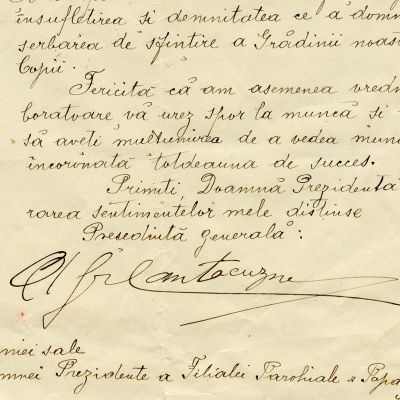 însufletirea si demnitatea ce a domn
serbarea de sfintire a Grădinii noas
Copii.
Fericită că am asemenea vredn
boratoare vă urez spor la muncă si
să aveti multumirea de a vedea mun
încoronată totdeauna de succes.
Primiti, Doamnă Prezidentă
rarea sentimentelor mele distinse
Presedintă generală:
Cantacuzne
niei sale
mnei Prezidente a Filialei Parohiale "Popa